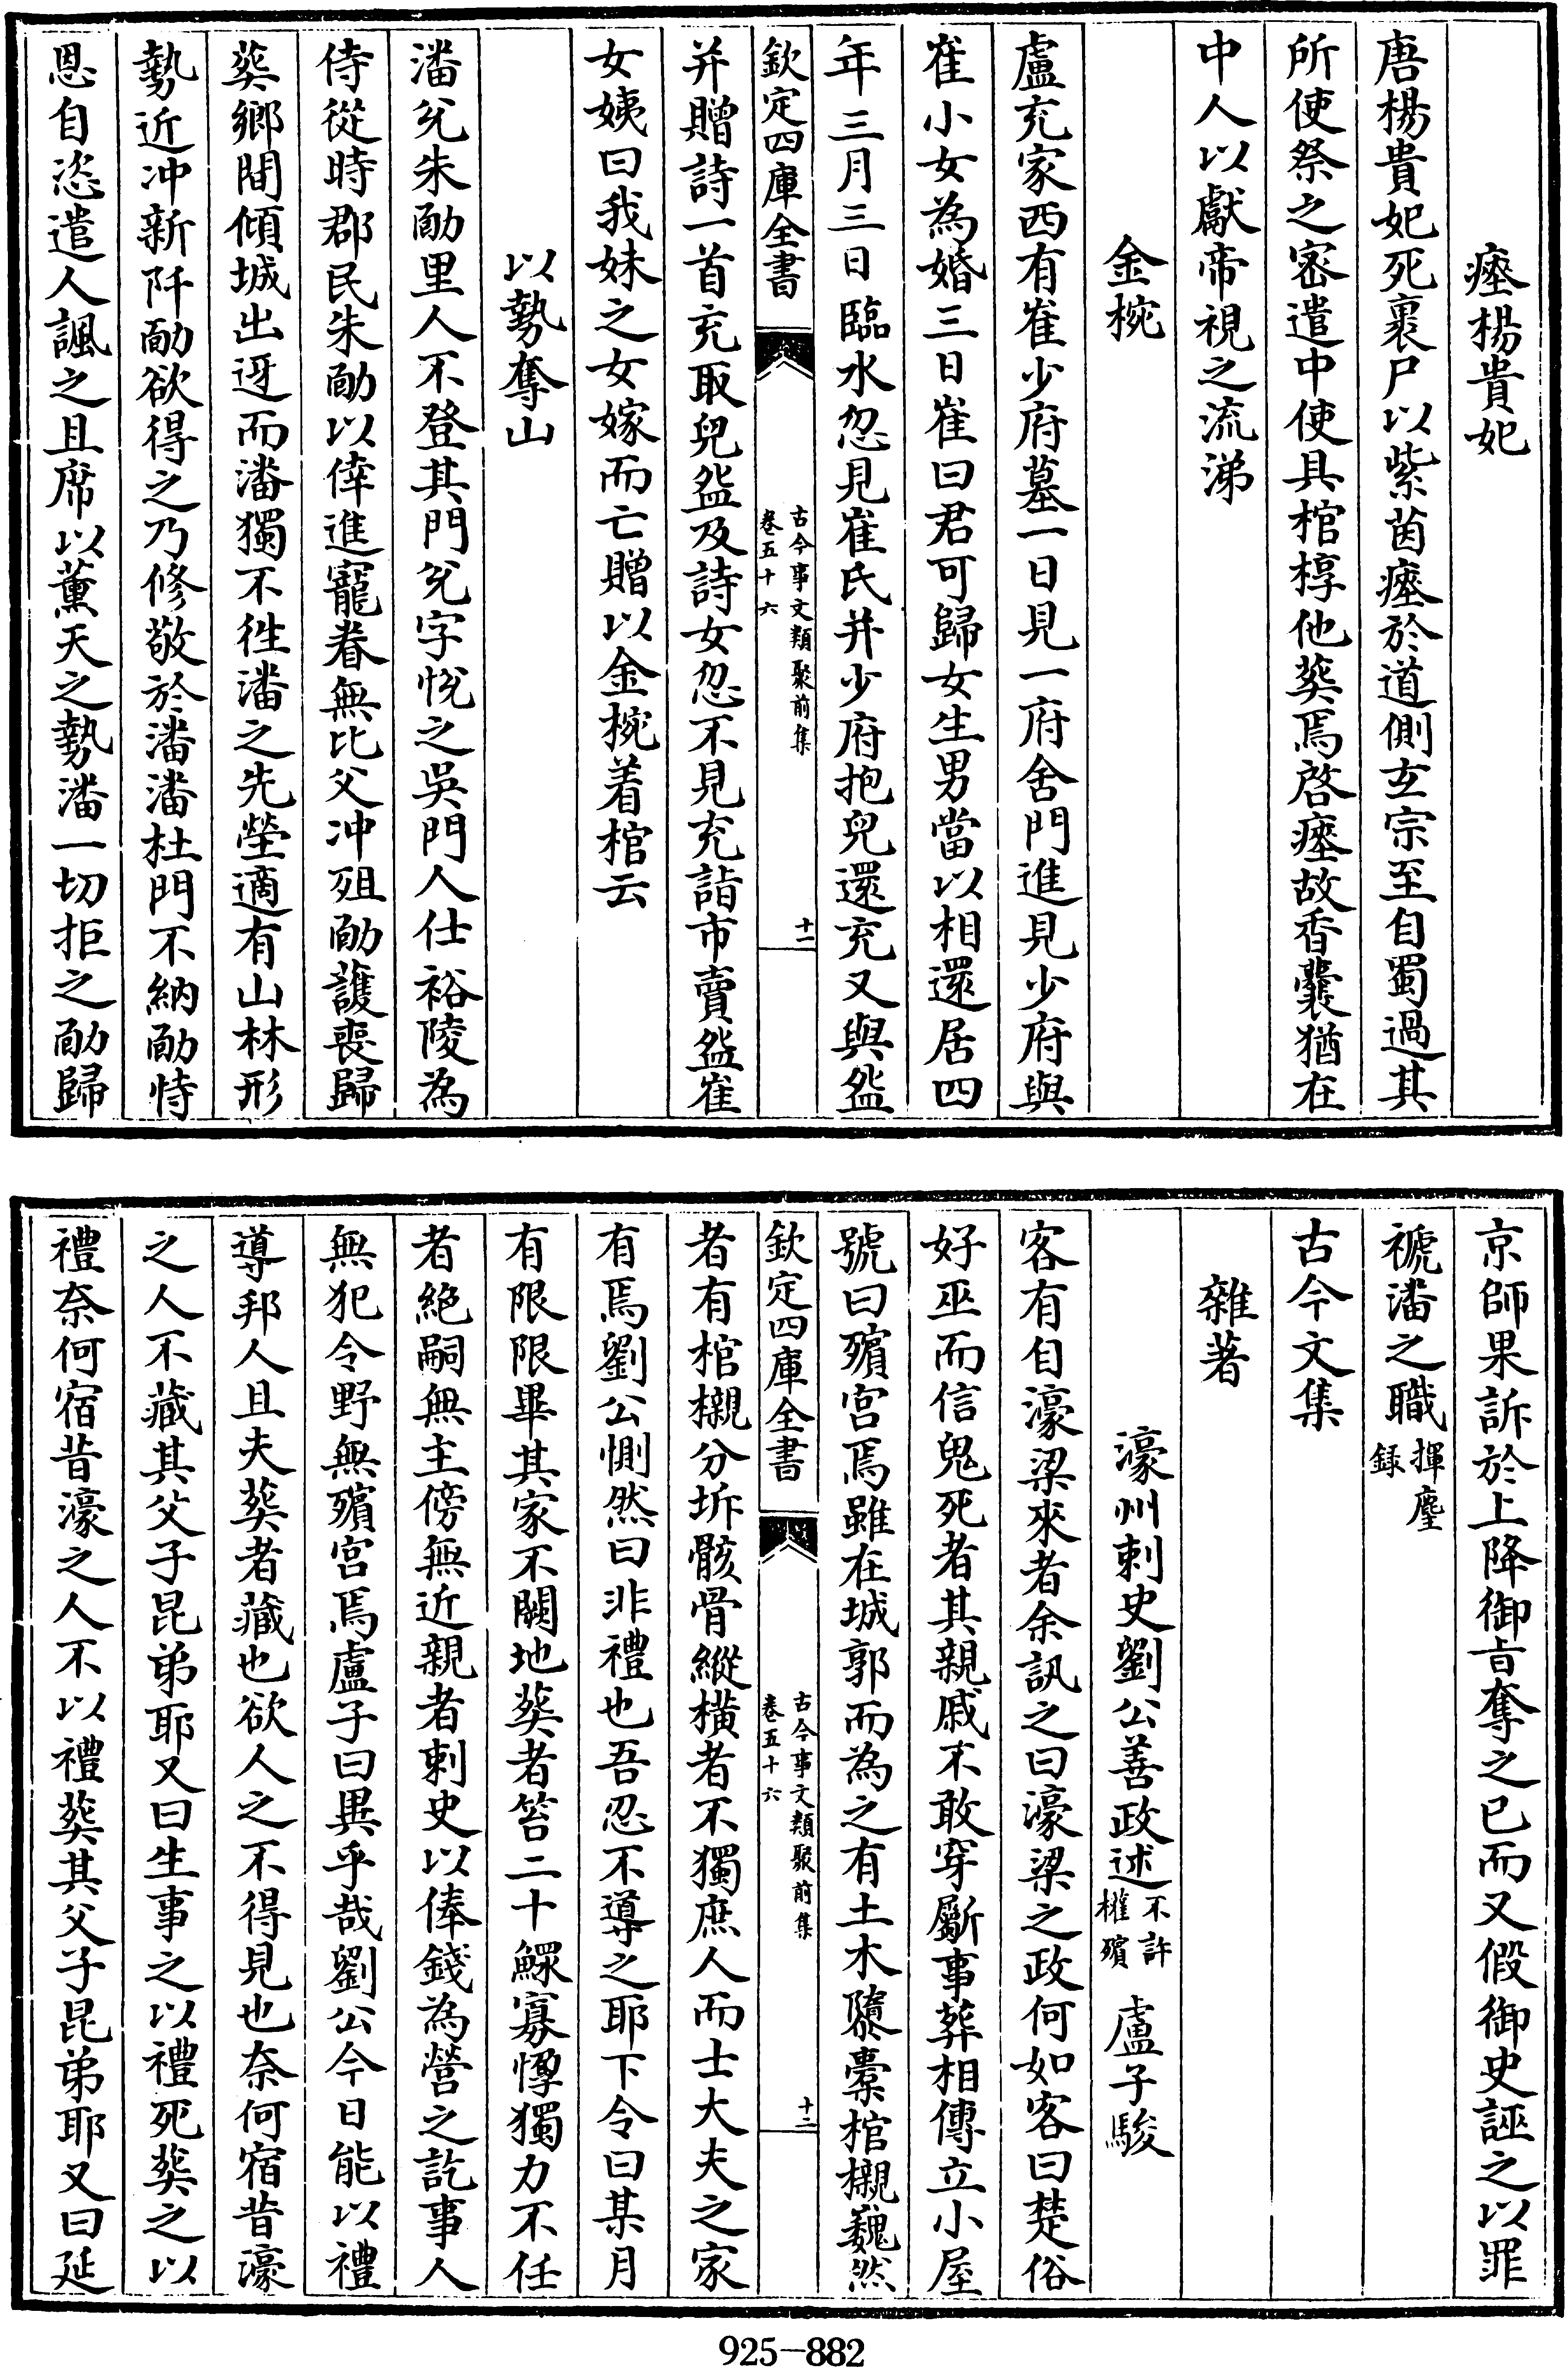 瘞楊貴妃
唐楊貴妃死裹尸以紫茵瘞於道側玄宗至自蜀過其
所使祭之密遣中使具棺椁他葬焉啓瘞故香囊猶在
中人以獻帝視之流涕
金椀
盧充家西有崔少府墓一日見一府舍門進見少府與
崔小女為婚三日崔曰君可歸女生男當以相還居四
年三月三日臨水忽見崔氏并少府抱兒還充又與盌
欽定四庫全書
古今事文類聚前集
卷五十六
十一
并贈詩一首充取兒盌及詩女忽不見充詣市賣盌崔
女姨曰我妹之女嫁而亡贈以金椀着棺云
以勢奪山
潘兊朱勔里人不登其門兊字悅之吳門人仕裕陵為
侍從時郡民朱勔以倖進寵眷無比父冲殂勔護喪歸
葬鄉閭傾城出迓而潘獨不徃潘之先塋適有山林形
勢近冲新阡勔欲得之乃修敬於潘潘杜門不納勔恃
恩自恣遣人諷之且席以薰天之勢潘一切拒之勔歸
京師果訴於上降御旨奪之已而又假御史誣之以罪
褫潘之職揮麈
録
古今文集
雜著
濠州刺史劉公善政述不許
權殯 盧子駿
客有自濠梁來者余訊之曰濠梁之政何如客曰楚俗
好巫而信鬼死者其親戚不敢穿斸事葬相傳立小屋
號曰殯宮焉雖在城郭而為之有土木隳橐棺櫬巍然
欽定四庫全書
古今事文類聚前集
卷五十六
十二
者有棺櫬分坼骸骨縱橫者不獨庶人而士大夫之家
有焉劉公惻然曰非禮也吾忍不導之耶下令曰某月
有限限畢其家不闕地葬者笞二十鰥寡惸獨力不任
者絶嗣無主傍無近親者刺史以俸錢為營之訖事人
無犯令野無殯宮焉盧子曰異乎哉劉公今日能以禮
導邦人且夫葬者藏也欲人之不得見也奈何宿昔濠
之人不藏其父子昆弟耶又曰生事之以禮死葬之以
禮奈何宿昔濠之人不以禮葬其父子昆弟耶又曰延
925-882